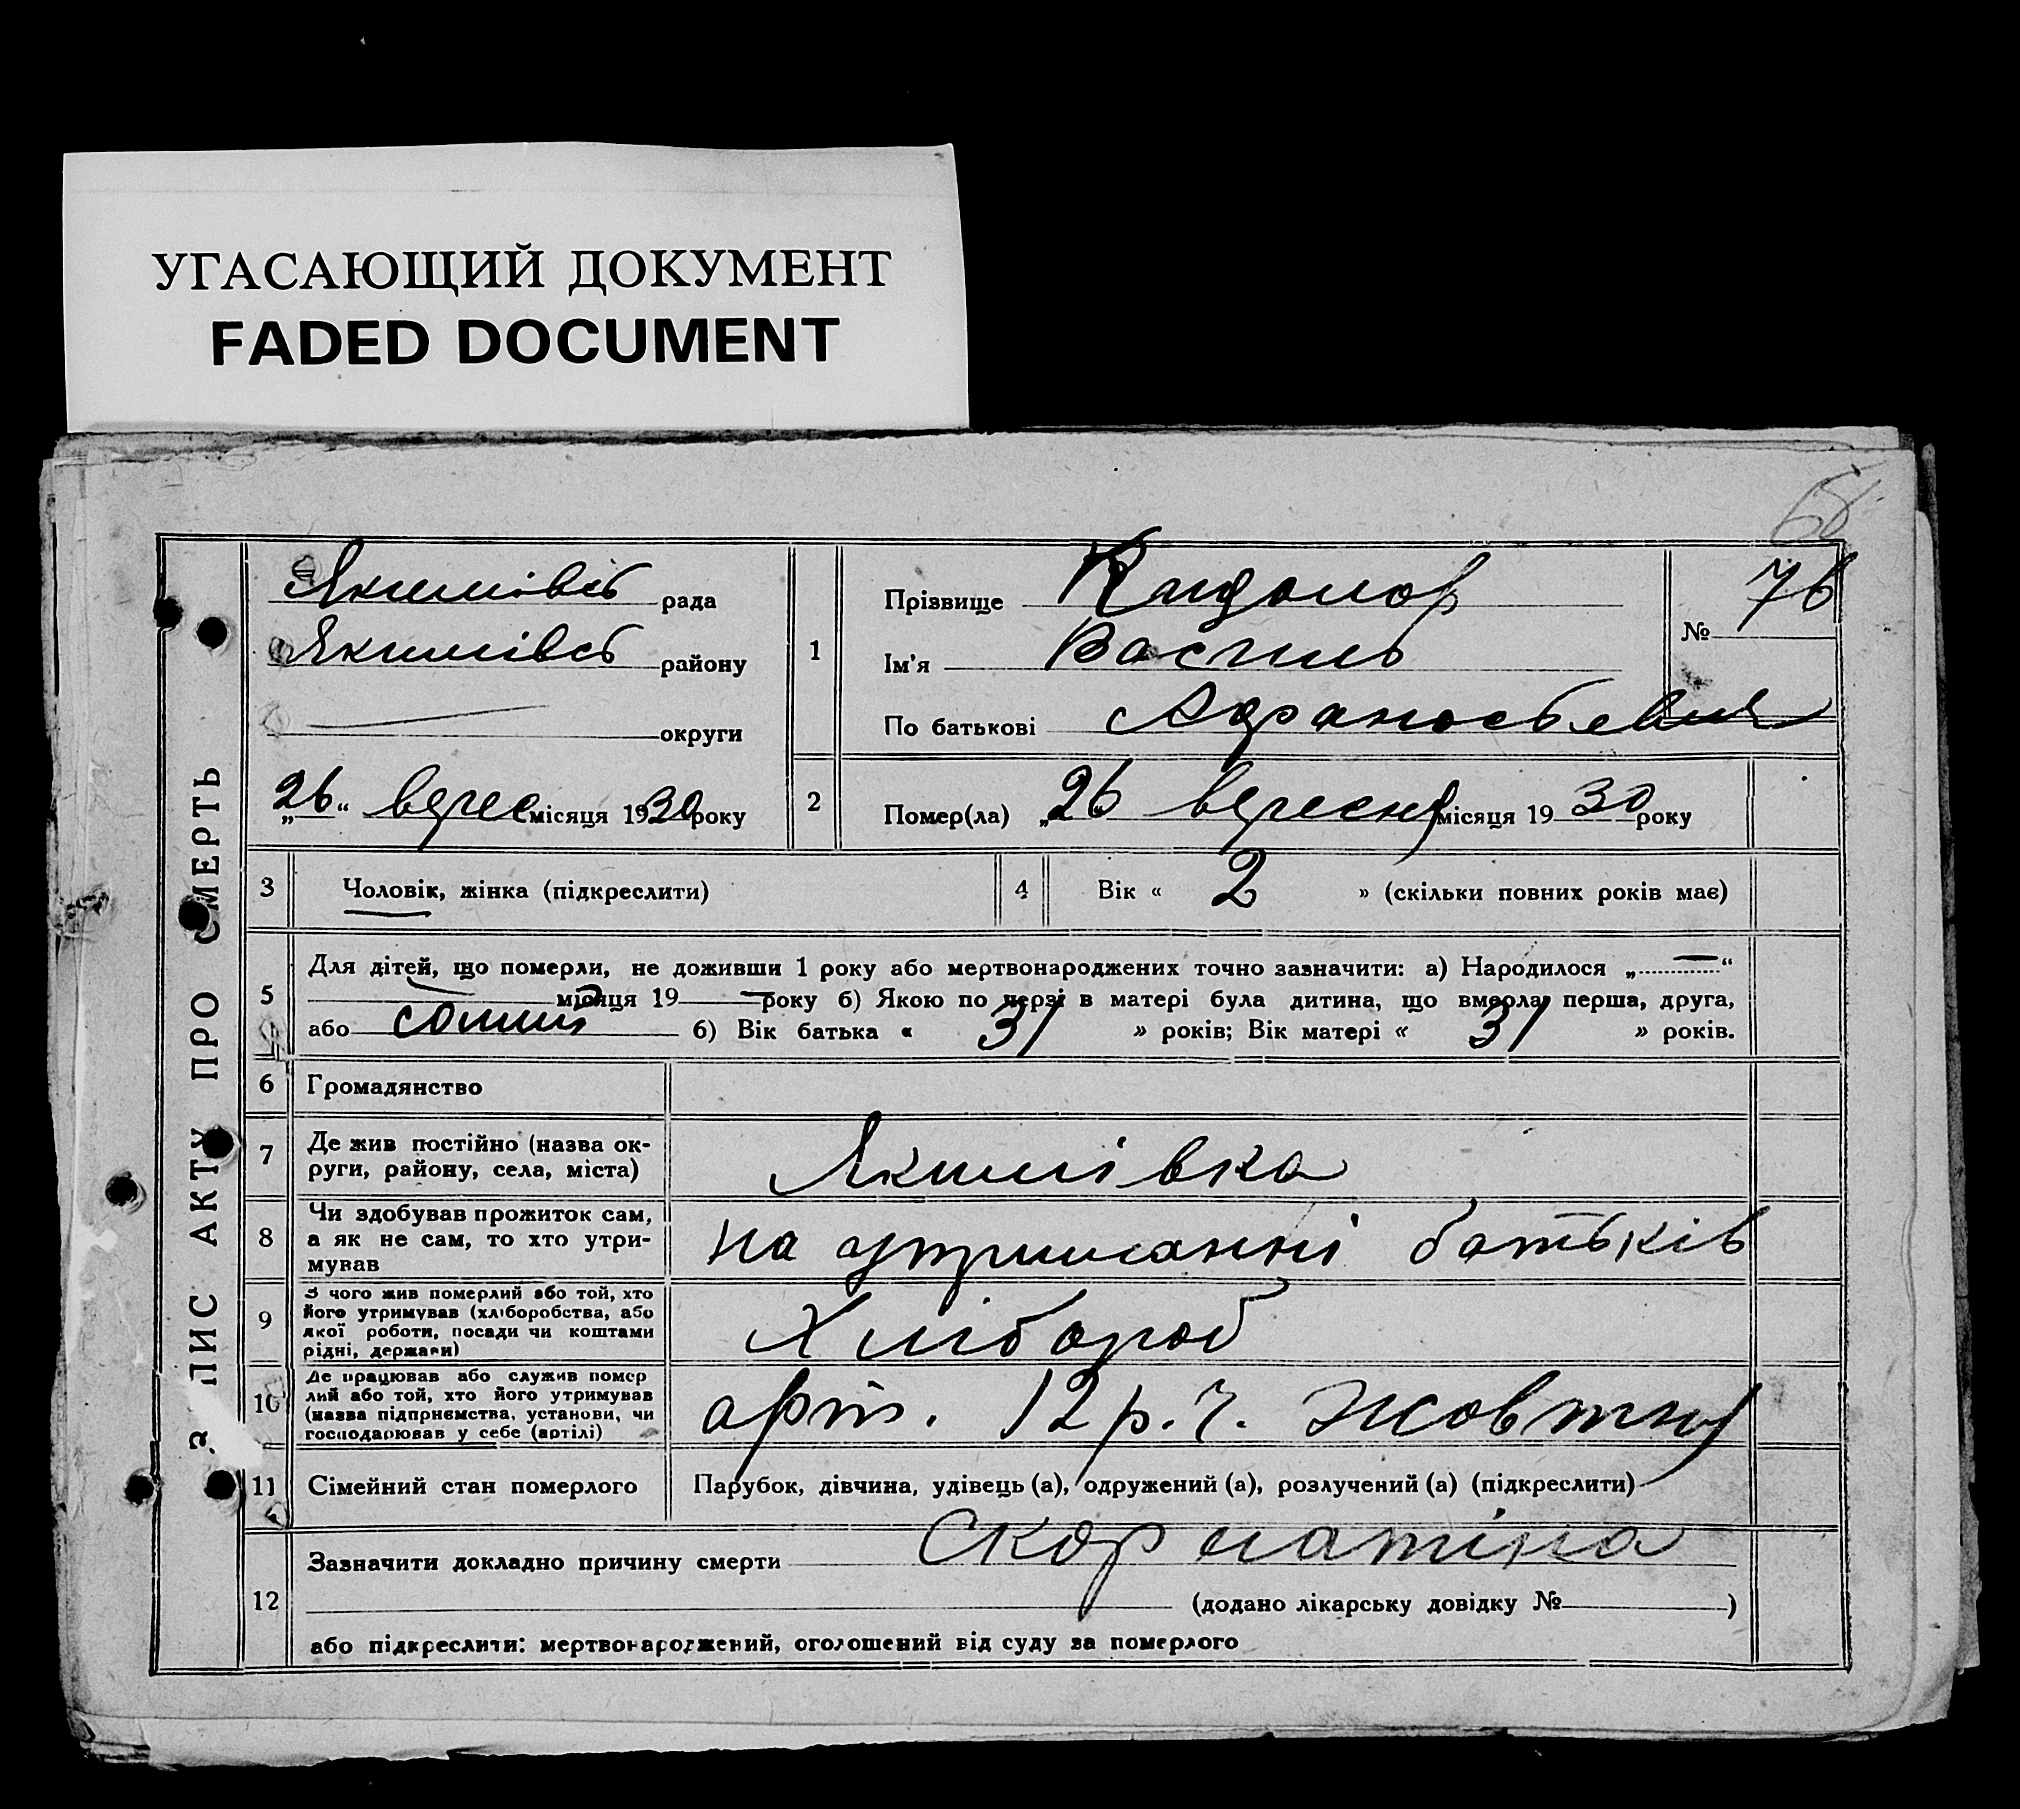 УГАСАЮЩИЙ ДОКУМЕНТ
FADED DOCUMENT
ЗАПИС АКТУ ПРО СМЕРТЬ
Якимівсь рада
Якимівсь району
округи
„26“ верес місяця 1930 року
1
Прізвище
Ім'я Василь
По батькові
№ 76
2
Помер(ла) „26 вересня місяця 1930 року
3 Чоловік, жінка (підкреслити)
4 Вік « 2 » (скільки повних років має)
5
Для дітей, що померли, не доживши 1 року або мертвонароджених точно зазначити: а) Народилося „—“
місяця 19— року б) Якою по черзі в матері була дитина, що вмерла, перша, друга,
або б) Вік батька « 31 » років; Вік матері « 31 » років.
6 Громадянство
7 Де жив постійно (назва ок-
руги, району, села, міста)
Якимівка
8 Чи здобував прожиток сам,
а як не сам, то хто утри-
мував
на утриманні батьків
9 З чого жив померлий або той, хто
його утримував (хліборобства, або
якої роботи, посади чи коштами
рідні, держави)
Хлібороб
10 Де працював або служив помер
лий або той, хто його утримував
(назва підприємства, установи, чи
господарював у себе (артілі)
арт. 12 р.ч. Жовтня
11 Сімейний стан померлого
Парубок, дівчина, удівець (а), одружений (а), розлучений (а) (підкреслити)
12
Зазначити докладно причину смерти Скорлатіна
(додано лікарську довідку № )
або підкреслити: мертвонароджений, оголошений від суду за померлого